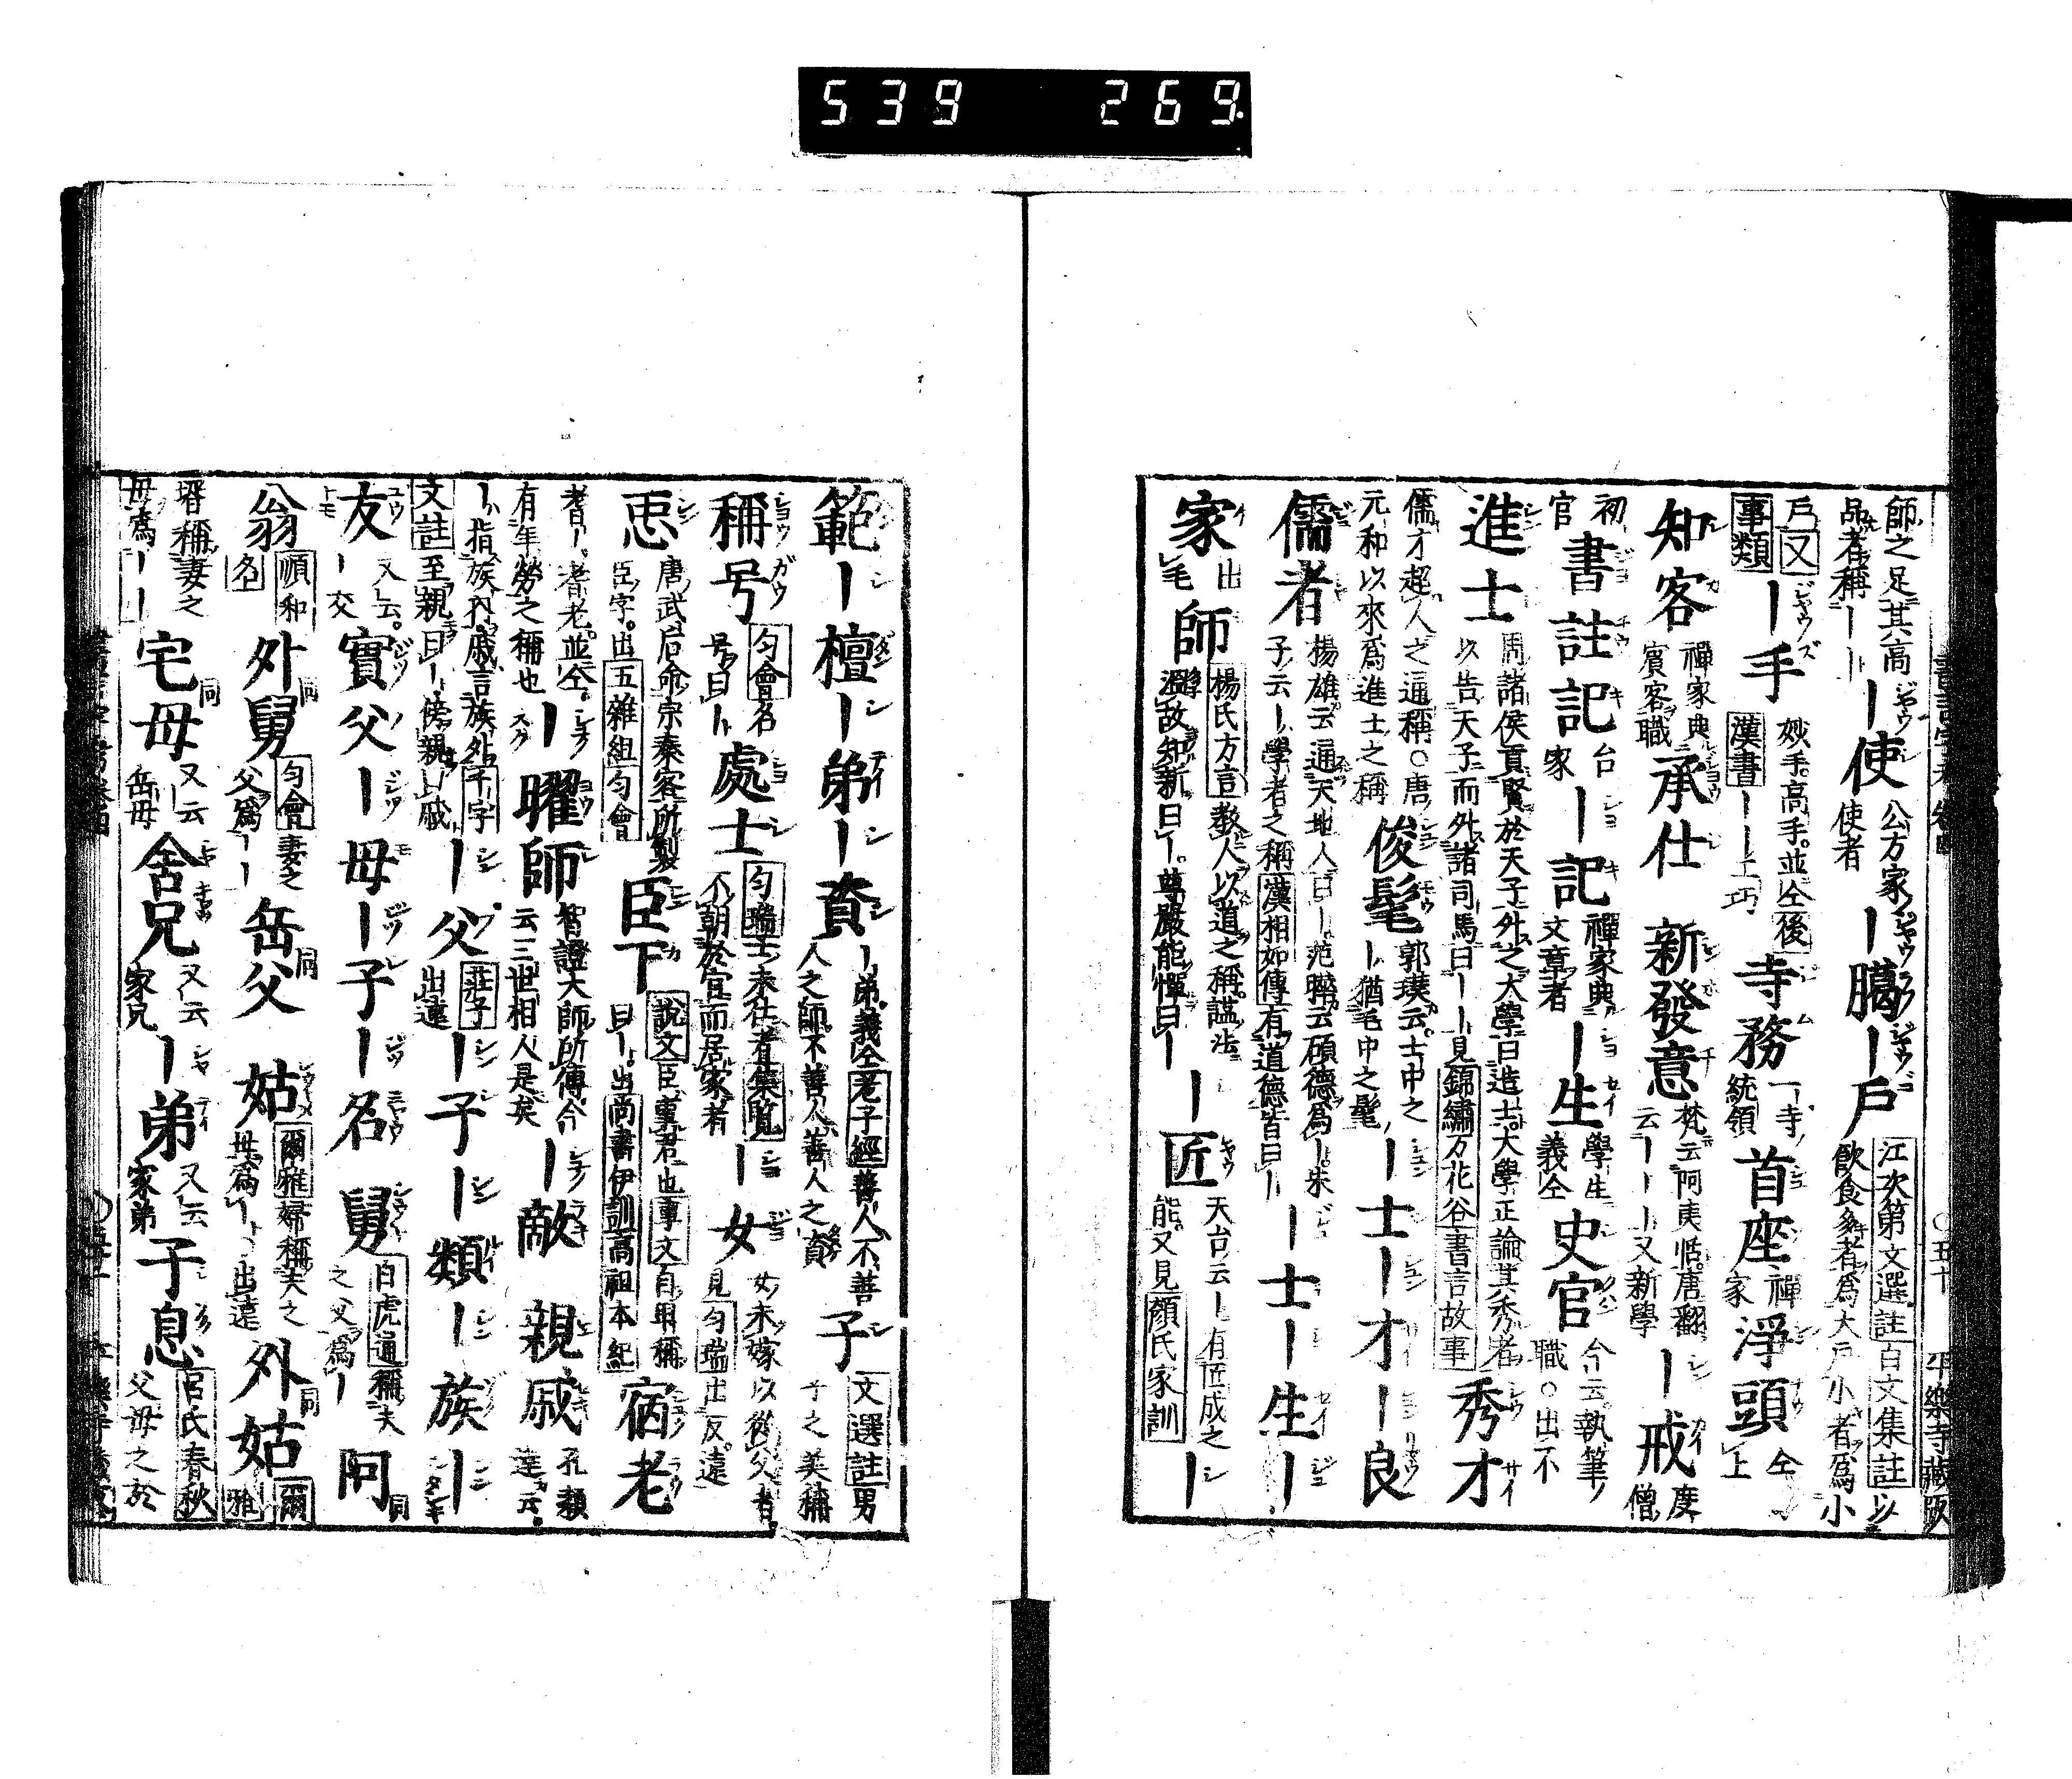 539 269
師之足其高品者稱｜｜ ｜使 公方家使者 ｜臈｜戶 江次第文選註白文集註以飲食多者爲大戶小者爲小
戶又事類 ｜手 妙手高手並仝後漢書｜｜工巧 寺務 一寺統領 首座 禪家 淨頭 仝上
知客 禪家典賓客職 承仕 新發意 梵云阿夷恬唐翻云｜｜｜又新學 ｜戒 度僧
初官 書註記 台家 ｜記 禪家典文章者 ｜生 學生義仝 史官 今云執筆職○出不
進士 周諸侯貢賢於天子外之大學曰造士大學正論其秀者以告天子而外諸司馬曰｜｜見錦繡万花谷書言故事 秀才
儒才超人之通稱○唐元和以來爲進士之稱 俊髦 郭璞云士中之｜猶毛中之髦 ｜士｜才｜良
儒者 楊雄云通天地人曰｜范曄云碩德爲｜朱子云｜學者之稱漢相如傳有道德皆曰｜ ｜士｜生｜
家 出毛 師 楊氏方言教人以道之稱謚法故知新曰｜尊嚴能憚曰｜ ｜匠 天台云｜有匠成之能又見顏氏家訓 ｜
五十 平樂寺藏版
範｜檀｜弟｜資 ｜弟義仝老子經善人不善人之師不善人善人之資 子 文選註男子之美稱
稱号 匀會名号曰｜ 處士 匀瑞士未仕者集覧不朝於官而居家者 ｜女 女未嫁以從父者見匀瑞出反遠
恖 唐武后命宗秦客所製臣字出五雜組匀會 臣下 說文臣事君也事文自卑稱曰｜出尚書伊訓高祖本紀 宿老
者｜耆老並仝有年勞之稱也 ｜曜師 智證大師所傳今云三世相人是矣 ｜敵 親戚 孔穎達云
｜指族內戚言族外千字文註至親曰｜傍親曰戚 ｜父 莊子出遠 ｜子｜類｜族｜
友 又云｜交 實父｜母｜子｜名 舅 白虎通稱夫之父爲｜ 阿
翁 順和名 外舅 匀會妻之父爲｜｜ 岳父 姑 爾雅婦稱夫之母爲｜出遠 外姑 爾雅
壻稱妻之母爲｜｜ 宅母 又云岳母 舍兄 又云家兄 ｜弟 又云家弟 子息 呂氏春秋父母之於